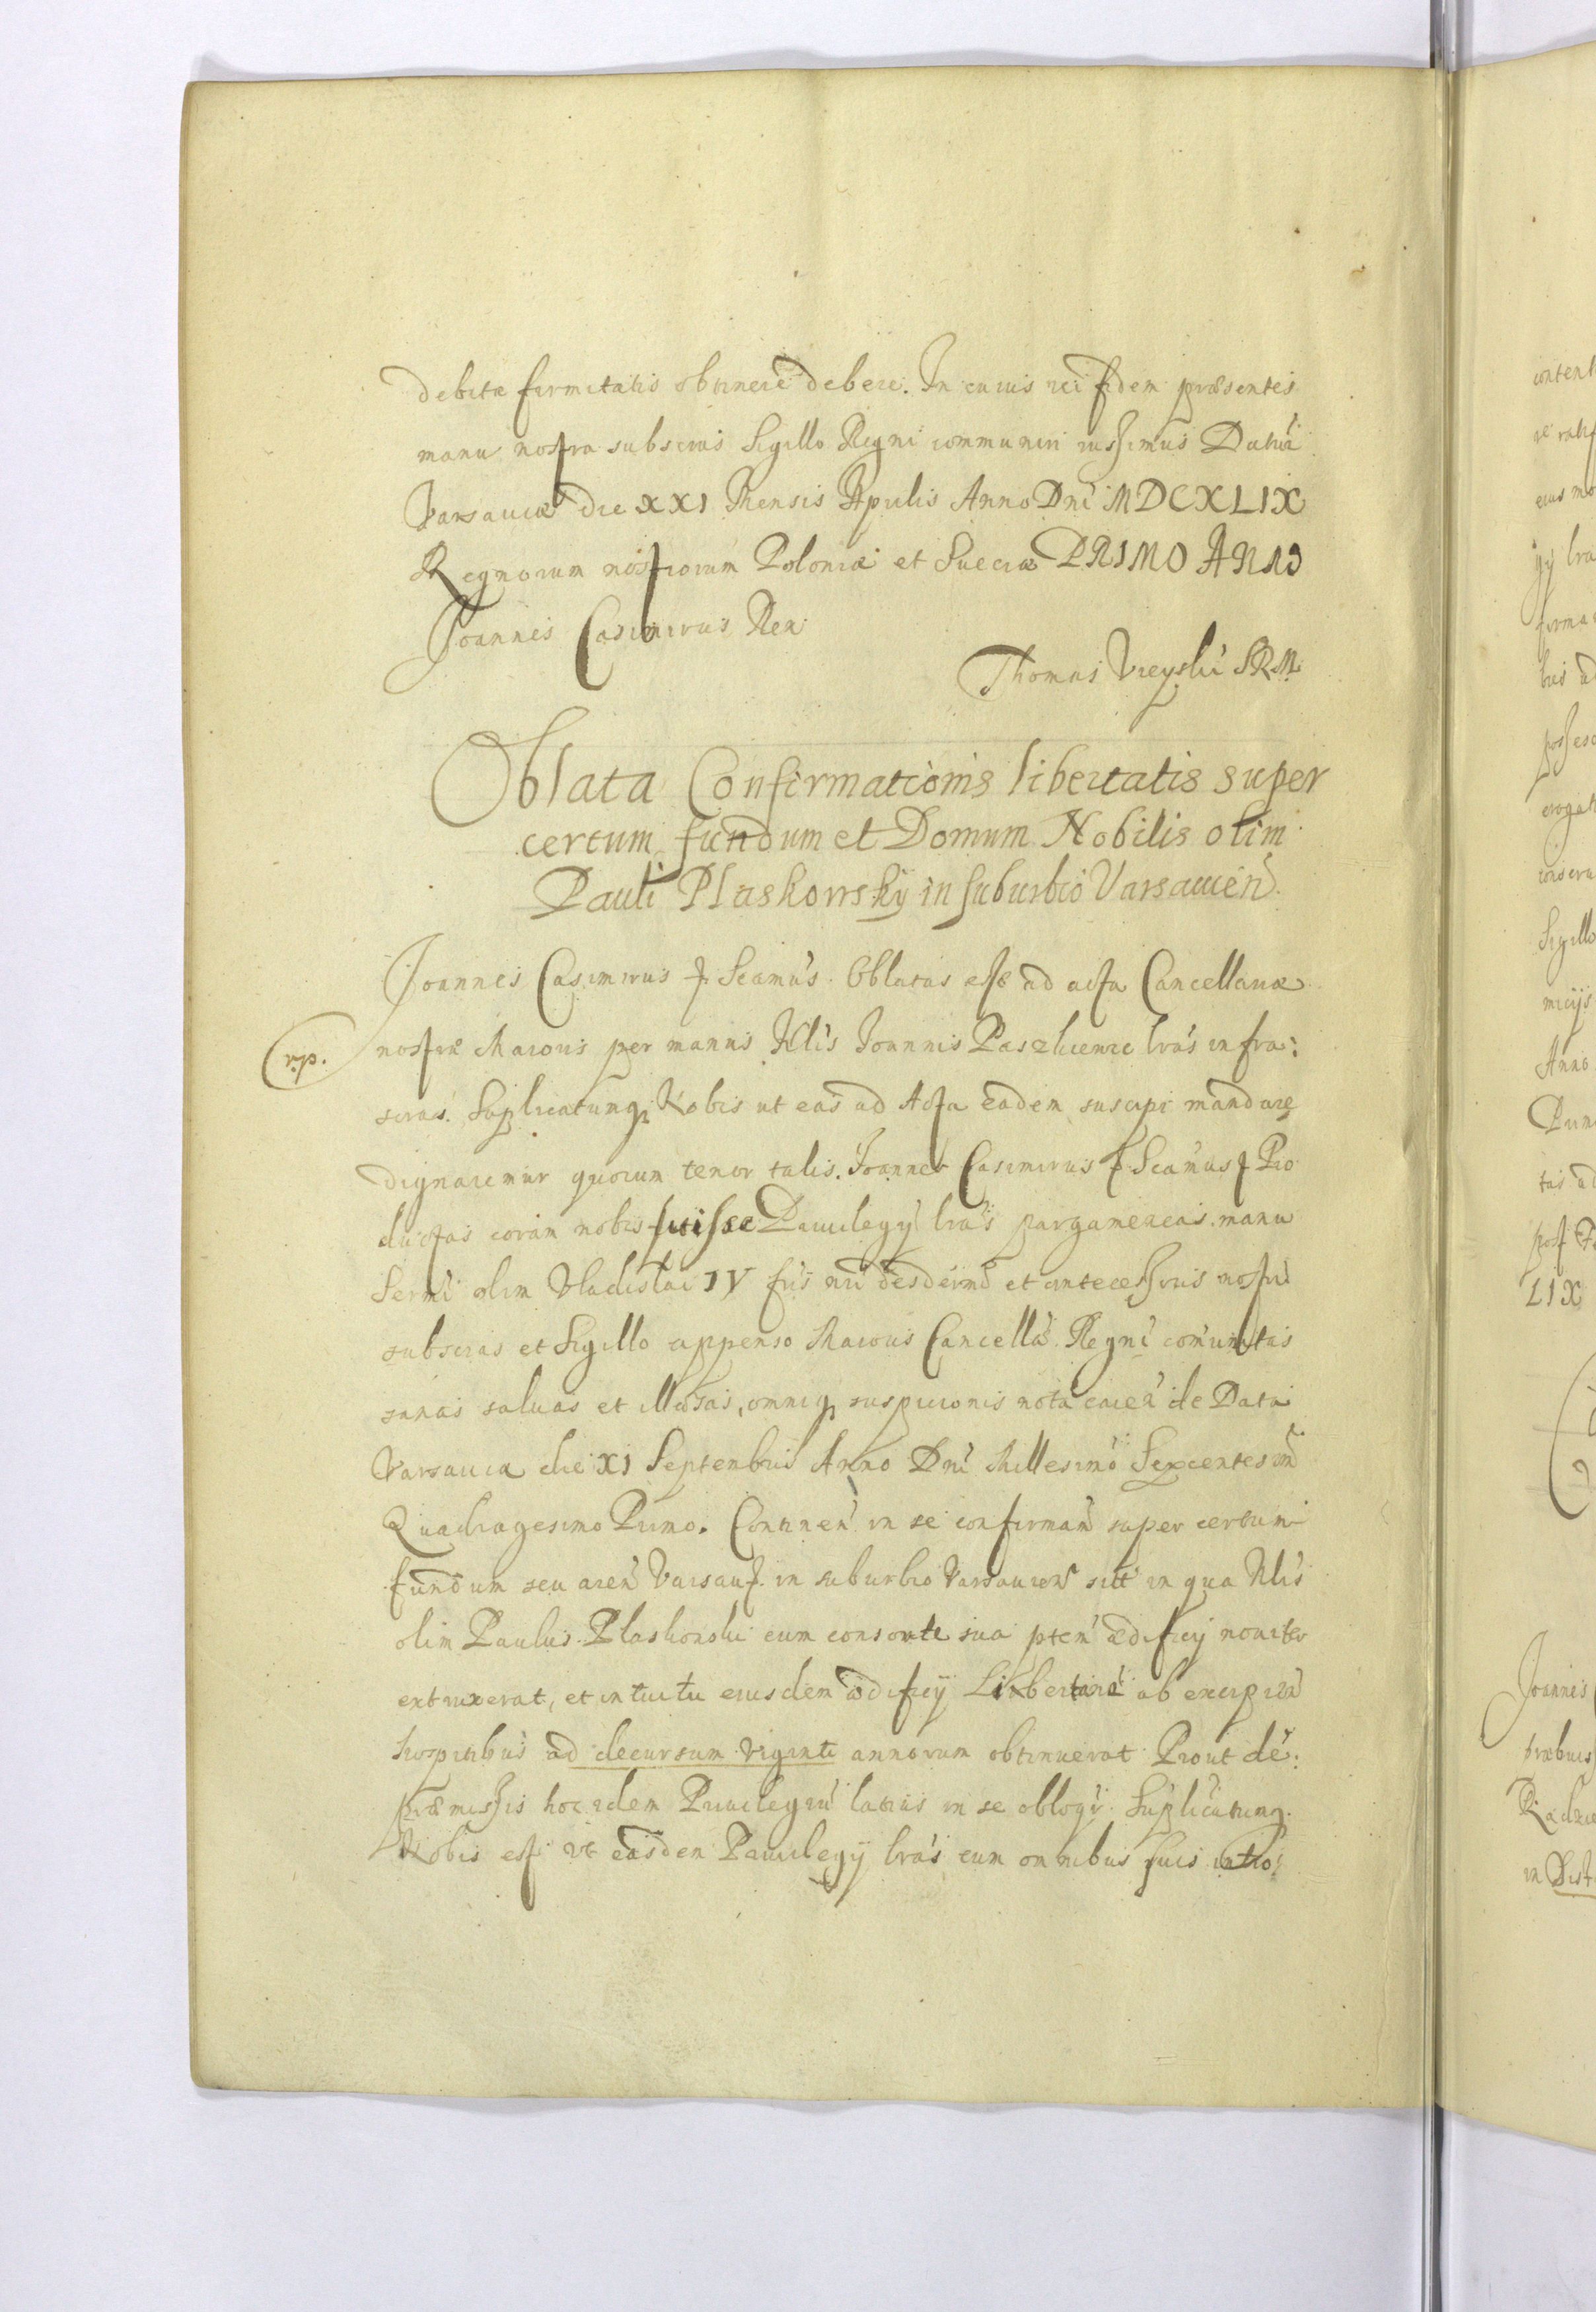 debitæ firmitatis obtinere debere. In cuius rei fidem præsentes
manu nostra subscras Sigillo Regni communiri iussimus Datum
Varsauiæ die XXI Mensis Aprilis Anno Dni MDCXLIX
Regnorum nostrorum Poloniæ et Sueciæ PRIMO ANNO
Joannes Casimirus Rex
Thomas Vieyski SRM
Oblata Confirmationis libertatis super
certum fundum et Domum Nobilis olim
Pauli Plaskowsky in suburbio Varsauien
Joannes Casimirus f Scamus. Oblatas esse ad acta Cancellariæ
rp.
nostræ Maioris per manus Nlis Joannis lras infra:
scras. Suplicatumq Nobis ut eas ad Acta eadem suscipi mandare
dignaremur quorum tenor talis. Joannes Casimirus f Scamus f Pro
ductas coram nobis fuisse Priuilegij lras pargameneas manu
Sermi olim Vladislai IV fris nri desdermi et antecessoris nostri
subscras et Sigillo appenso Maioris Cancellæ Regni comunitas
sanas saluas et illæsas, omniq suspicionis nota caren de Data
Varsauia die XI Septenbris Anno Dni Millesimo Sexcentesim
Quadragesimo Primo. Continen in se confirmam super certum
fundum seu aren in suburbio Varsauien sitt in qua Nlis
olim Paulus Plaskonski cum consorte sua ædificij nouiter
extruxerat, et intuitu eiusdem ædificij Libertane ab excipien
hospitibus ad decursum viginti annorum obtinuerat Prout de:
præmissis hoc idem Priuilegium latius in se obloqr. Suplicatumq
Nobis est vt easdem Priuilegij lras cum omnibus suis intro:
content
Sigillo
Anno
LIX
Joannes